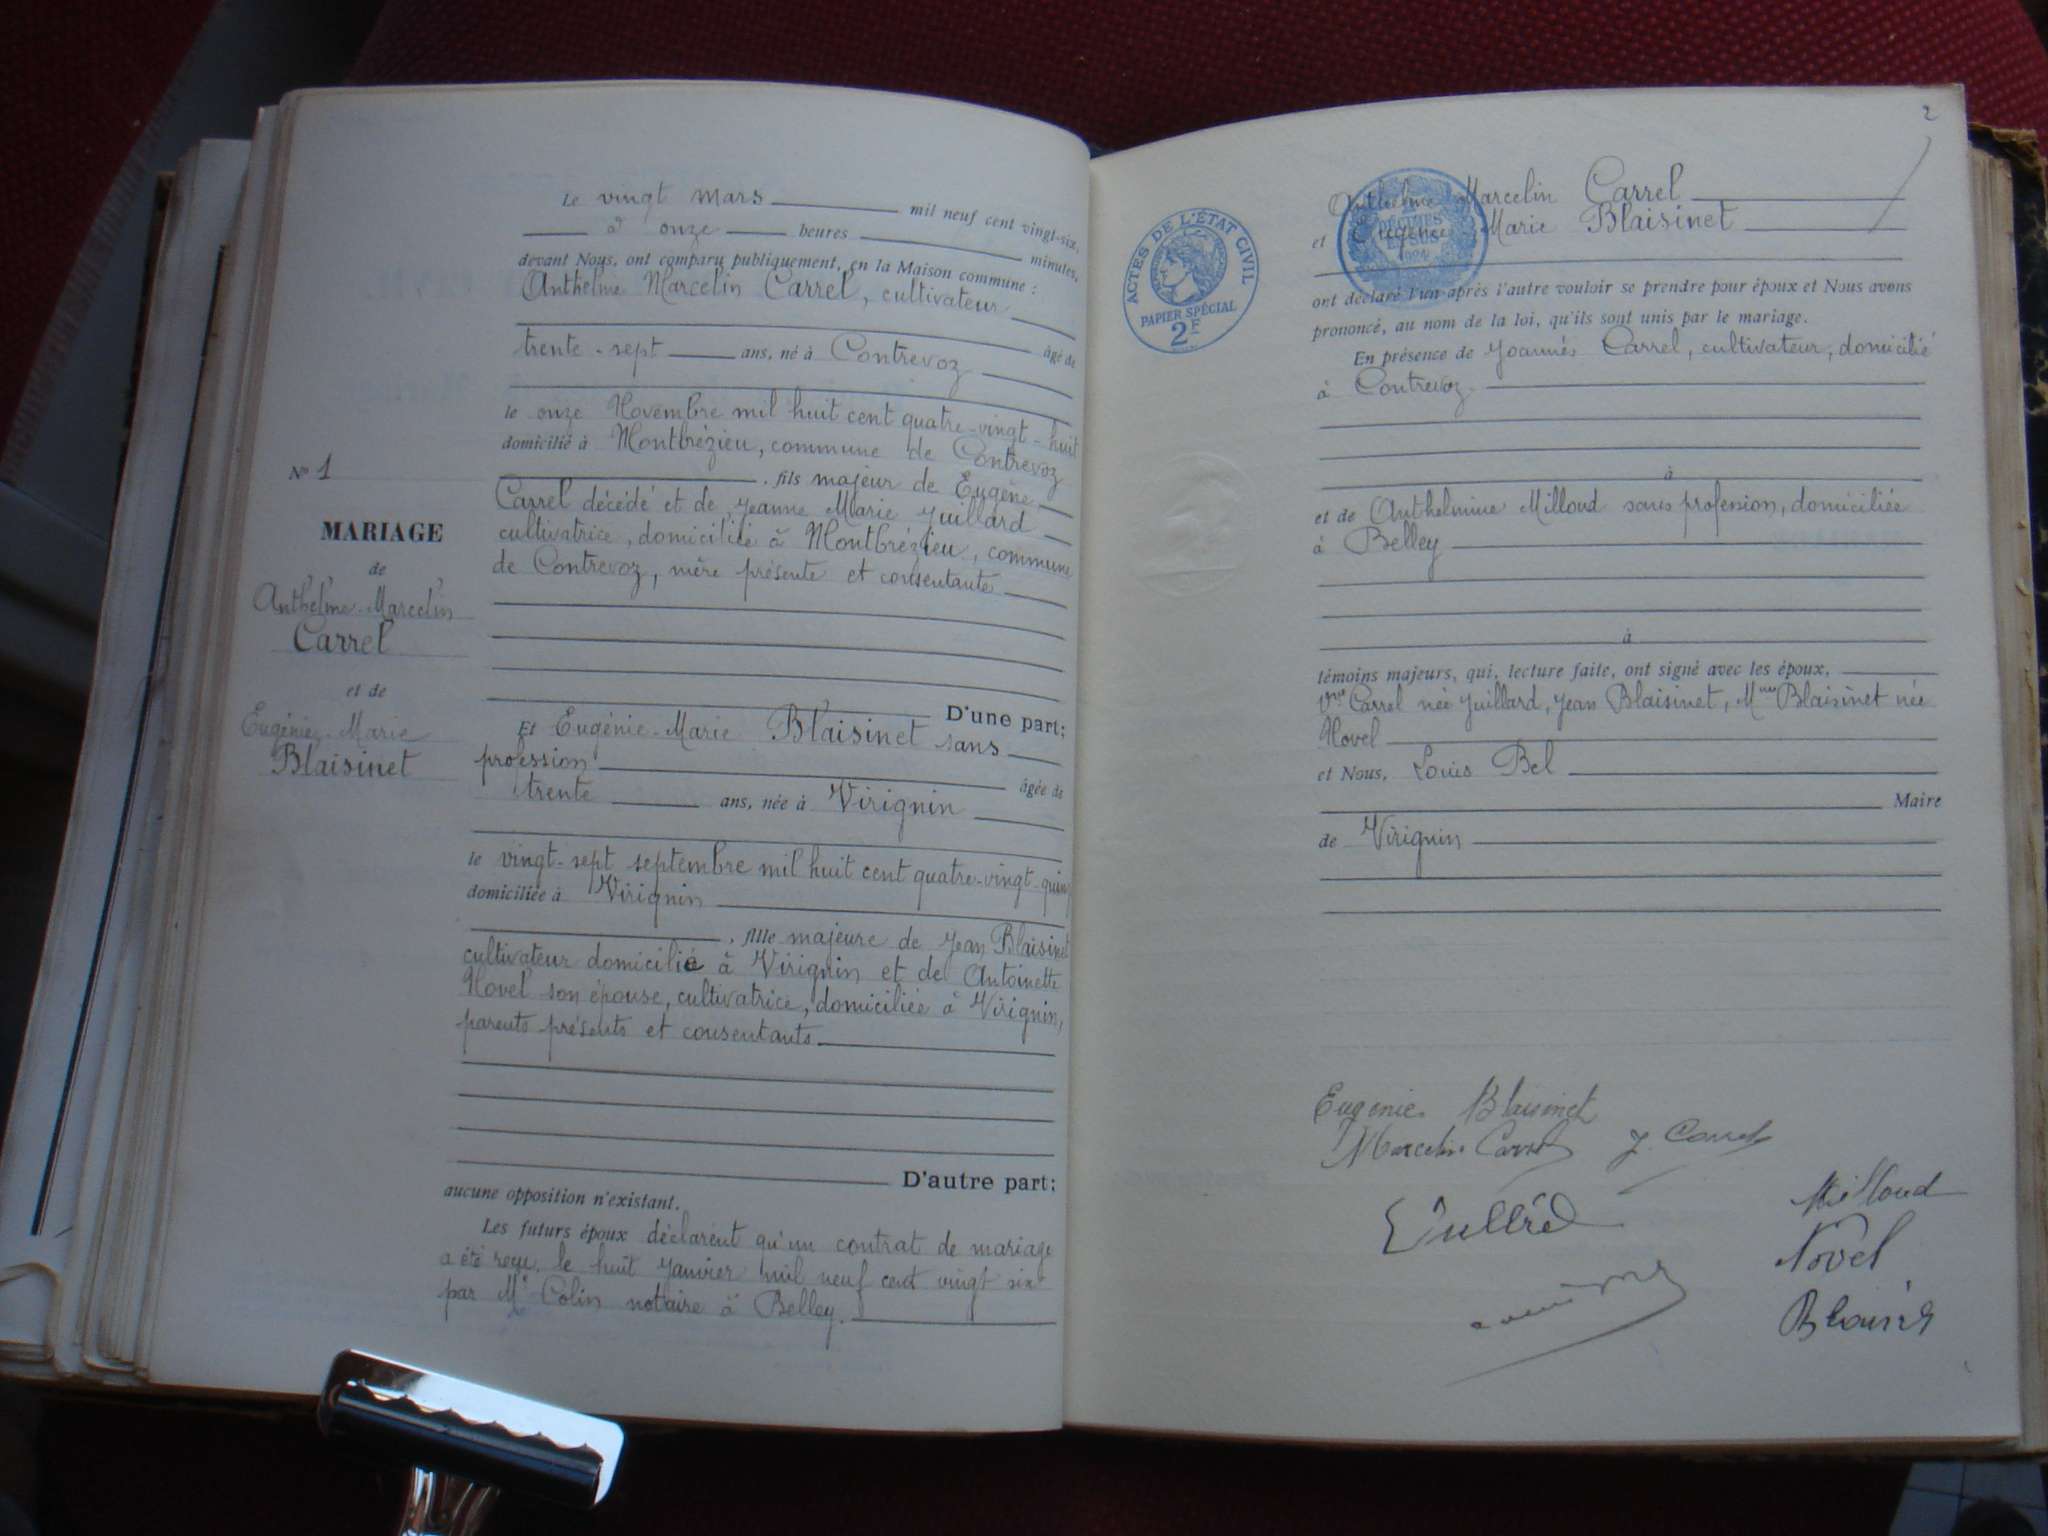 Le vingt mars mil neuf cent vingt-six,
à onze heures minutes,
devant Nous, ont comparu publiquement, en la Maison commune :
Anthelme Marcelin Carrel, cultivateur
âgé de
trente-sept ans, né à Contrevoz
le onze Novembre mil huit cent quatre-vingt-huit
domicilié à Montbrézieu, commune de Contrevoz
, fils majeur de Eugène
Carrel décédé et de Jeanne Marie Juillard
cultivatrice, domiciliée à Montbrézieu, commune
de Contrevoz, mère présente et consentante
D'une part;
Et Eugénie-Marie Blaisinet sans
profession
âgée de
trente ans, née à Virignin
le vingt-sept septembre mil huit cent quatre-vingt-quin
domiciliée à Virignin
, fille majeure de Jean Blaisinet
cultivateur domicilié à Virignin et de Antoinette
Novel son épouse, cultivatrice, domiciliée à Virignin,
parents présents et consentants
D'autre part;
aucune opposition n'existant.
Les futurs époux déclarent qu'un contrat de mariage
a été reçu le huit Janvier mil neuf cent vingt six
par Me Colin notaire à Belley.
No 1
MARIAGE
de
Anthelme-Marcelin
Carrel
et de
Eugénie-Marie
Blaisinet
2
ACTES DE L'ÉTAT CIVIL
PAPIER SPÉCIAL
2F
2
DÉCIMES
EN SUS
1924
Anthelme Marcelin Carrel
et Eugénie Marie Blaisinet
ont déclaré l'un après l'autre vouloir se prendre pour époux et Nous avons
prononcé, au nom de la loi, qu'ils sont unis par le mariage.
En présence de Joannès Carrel, cultivateur, domicilié
à Contrevoz
à
et de Anthelmine Milloud sans profession, domiciliée
à Belley
à
témoins majeurs, qui, lecture faite, ont signé avec les époux,
Vve Carrel née Juillard, Jean Blaisinet, Mme Blaisinet née
Novel
et Nous, Louis Bel
Maire
de Virignin
Eugénie Blaisinet
Marcelin Carrel J. Carrel
Milloud
Novel